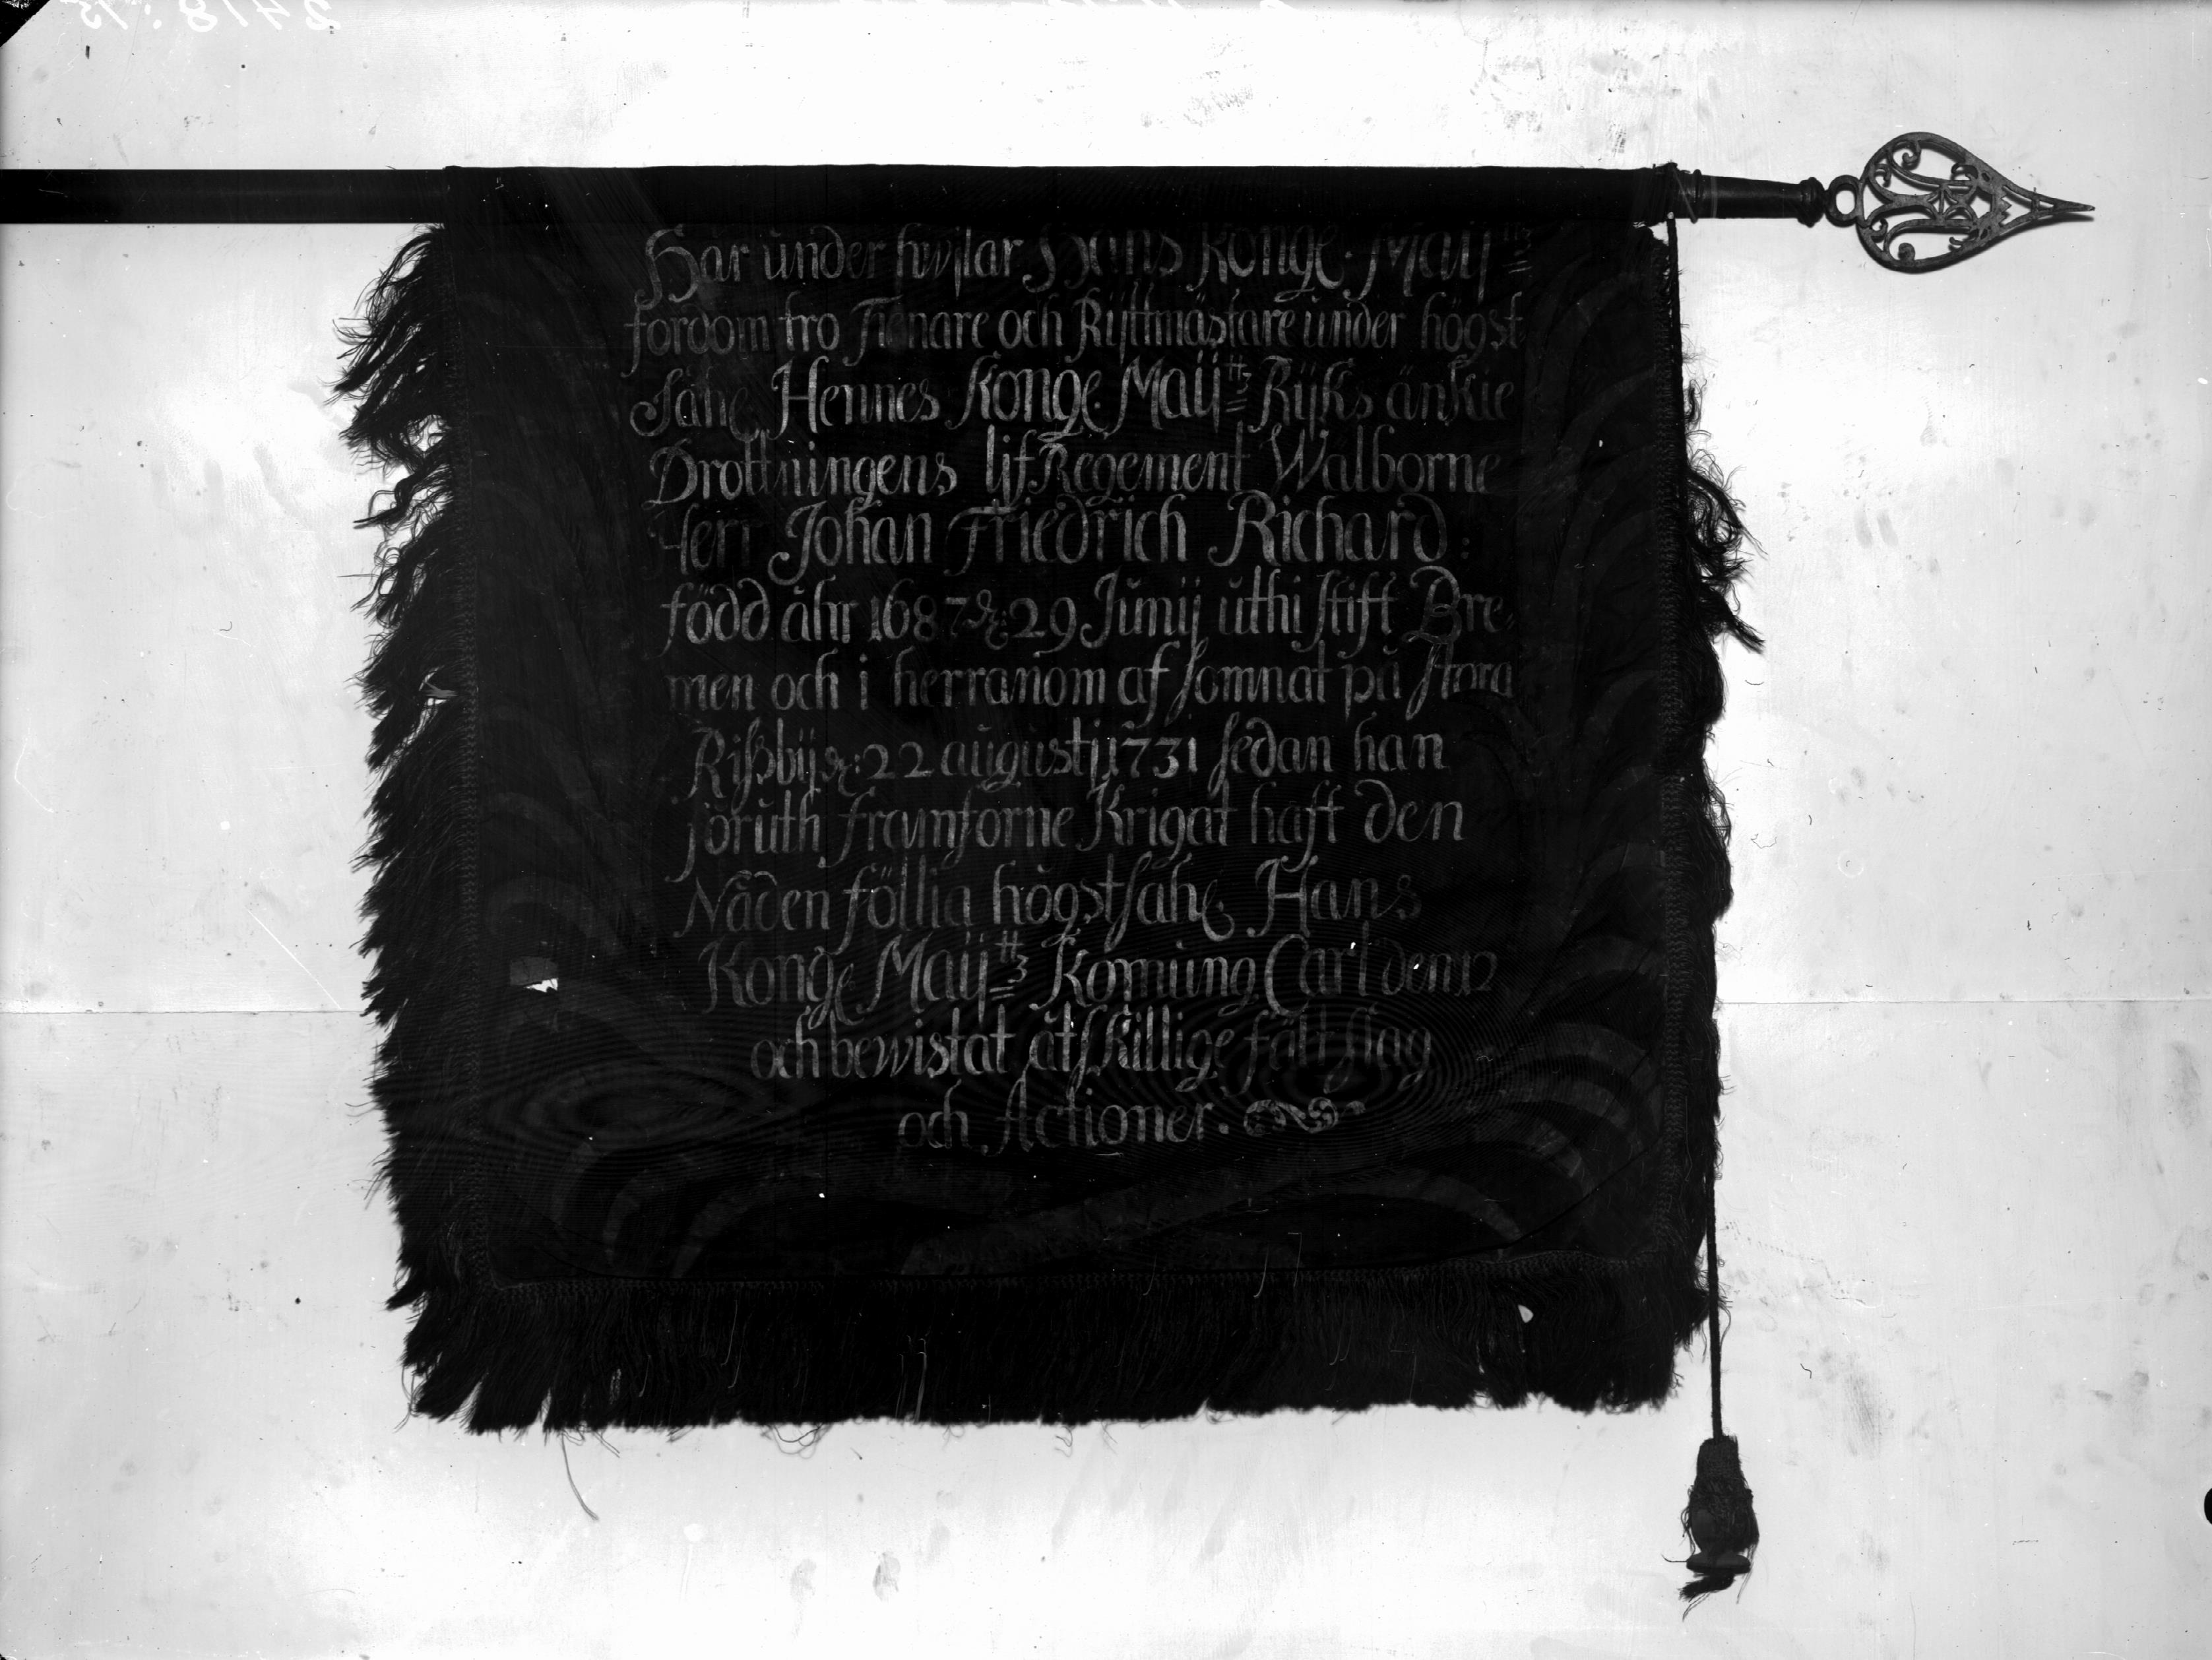 Här under hwilar Hans Konge. Maijttz
fordom tro Tienare och Rijttmästare under högst
Sahe. Hennes Konge. Maijttz Rijks änkie
Drottningens lif Regement Walborne
Herr Johan Friedrich Richard:
född åhr 1687 d: 29 Junij uthi stift Bre-
men och i herranom af somnat på stora
Rißbij d: 22 augustij 1731 sedan han
föruth framforne Krigat haft den
Nåden föllia högstsahe. Hans
Konge Maijttz Konung Carl den 12
och bewistat åtskillige fält slag
och Actioner.